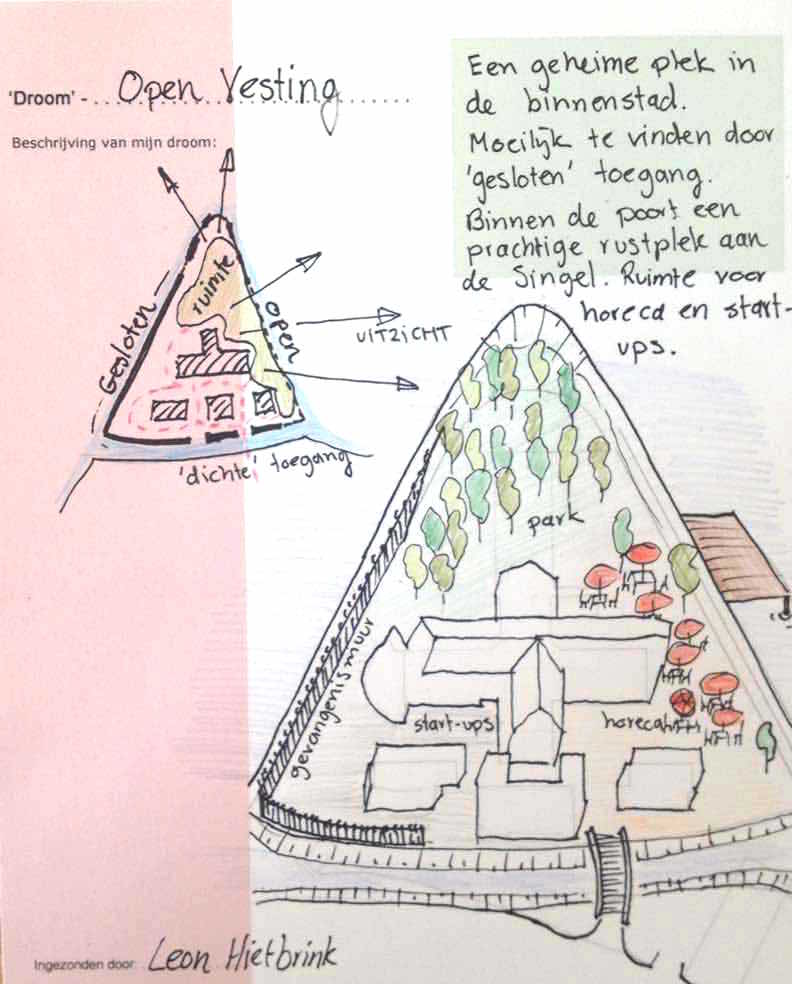 'Droom' - Open Vesting
Beschrijving van mijn droom:
Een geheime plek in
de binnenstad.
Moeilijk te vinden door
'gesloten' toegang.
Binnen de poort een
prachtige rustplek aan
de Singel. Ruimte voor
horeca en start-
ups.
Gesloten
ruimte
open
UITZICHT
'dichte' toegang
park
gevangenismuur
start-ups
horeca
Ingezonden door: Leon Hietbrink